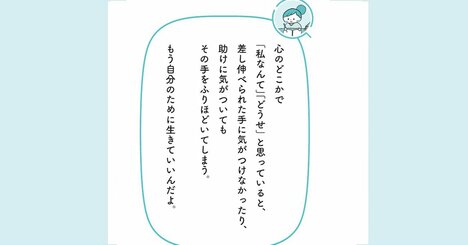 心のどこかで
「私なんて」「どうせ」と思っていると、
差し伸べられた手に気がつけなかったり、
助けに気がついても
その手をふりほどいてしまう。
もう自分のために生きていいんだよ。